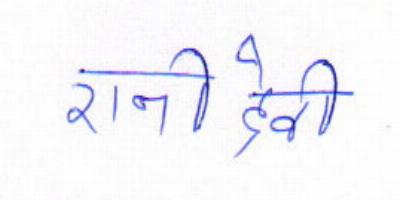 रानी देवी